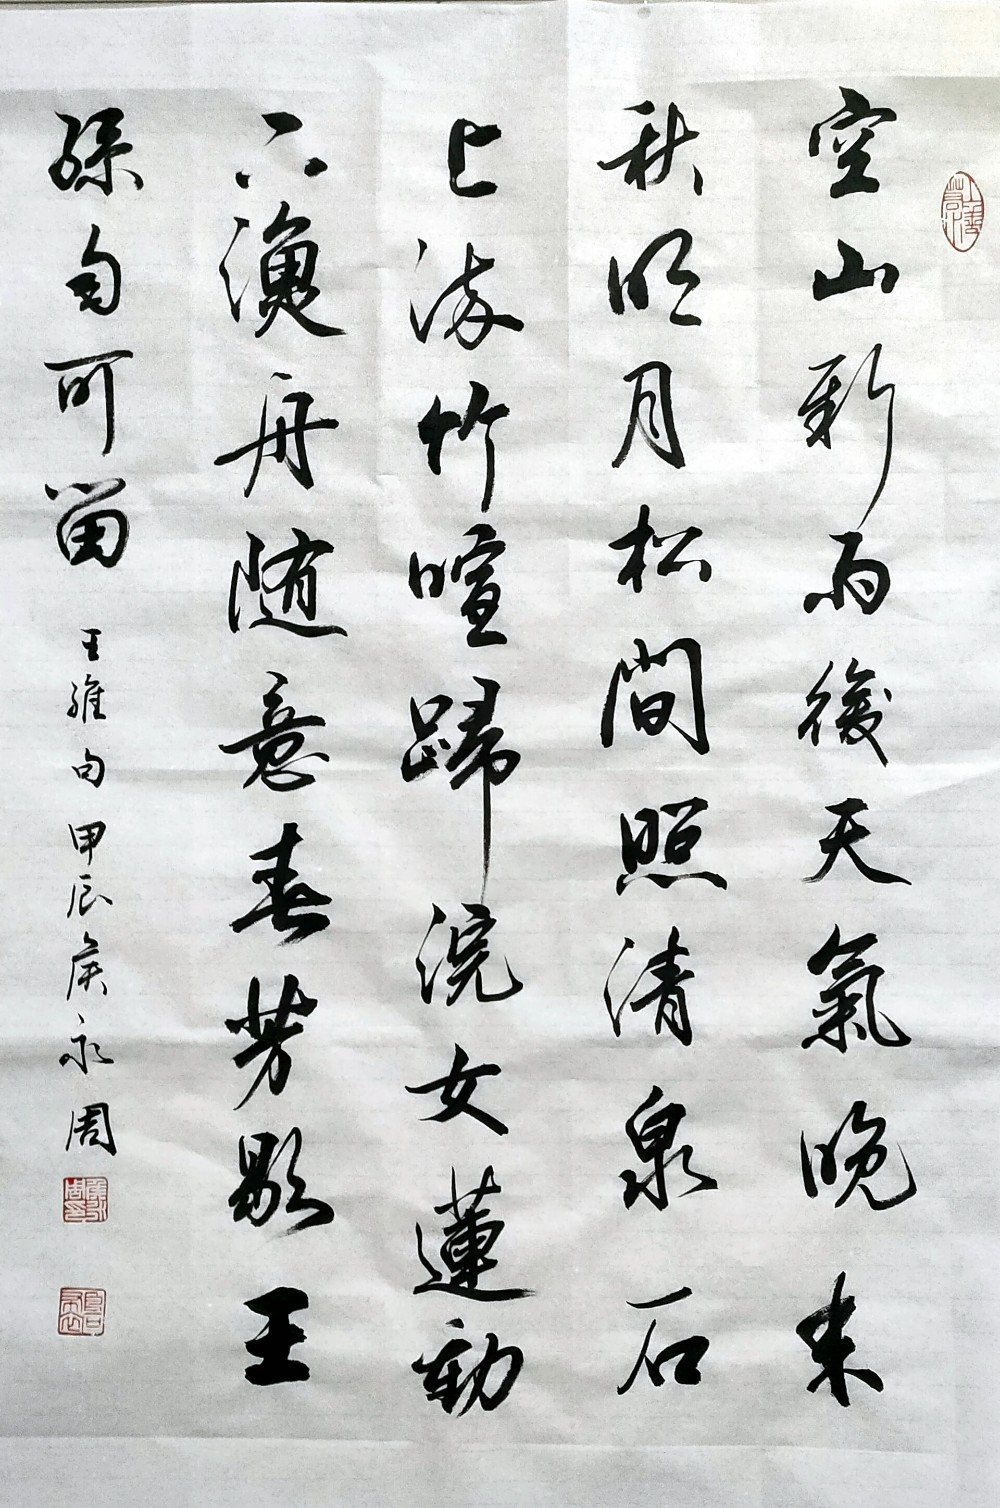 空山新雨後天氣晚来
秋明月松間照清泉石
上流竹喧歸浣女蓮動
下漁舟随意春芳歇王
孫自可留
王維句甲辰侯永周